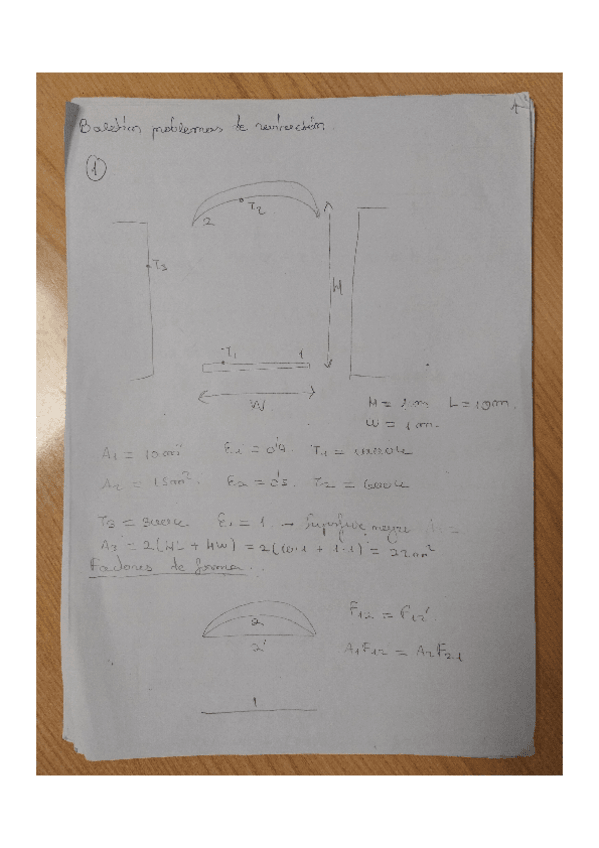 1
Boletín problemas de radiación.
1
2
T2
T3
H
T1
1
W
H = 1m L = 10m.
W = 1m.
A1 = 10m² T1 = 1000k
A2 = 15m². T2 = 600k
T3 = 300k = 1. → Superficie negra
A3 = 2(HL + HW) = 2(10·1 + 1·1) = 22m²
Factores de forma.
2
2'
F12 = F12'
1
A1F12 = A2F21